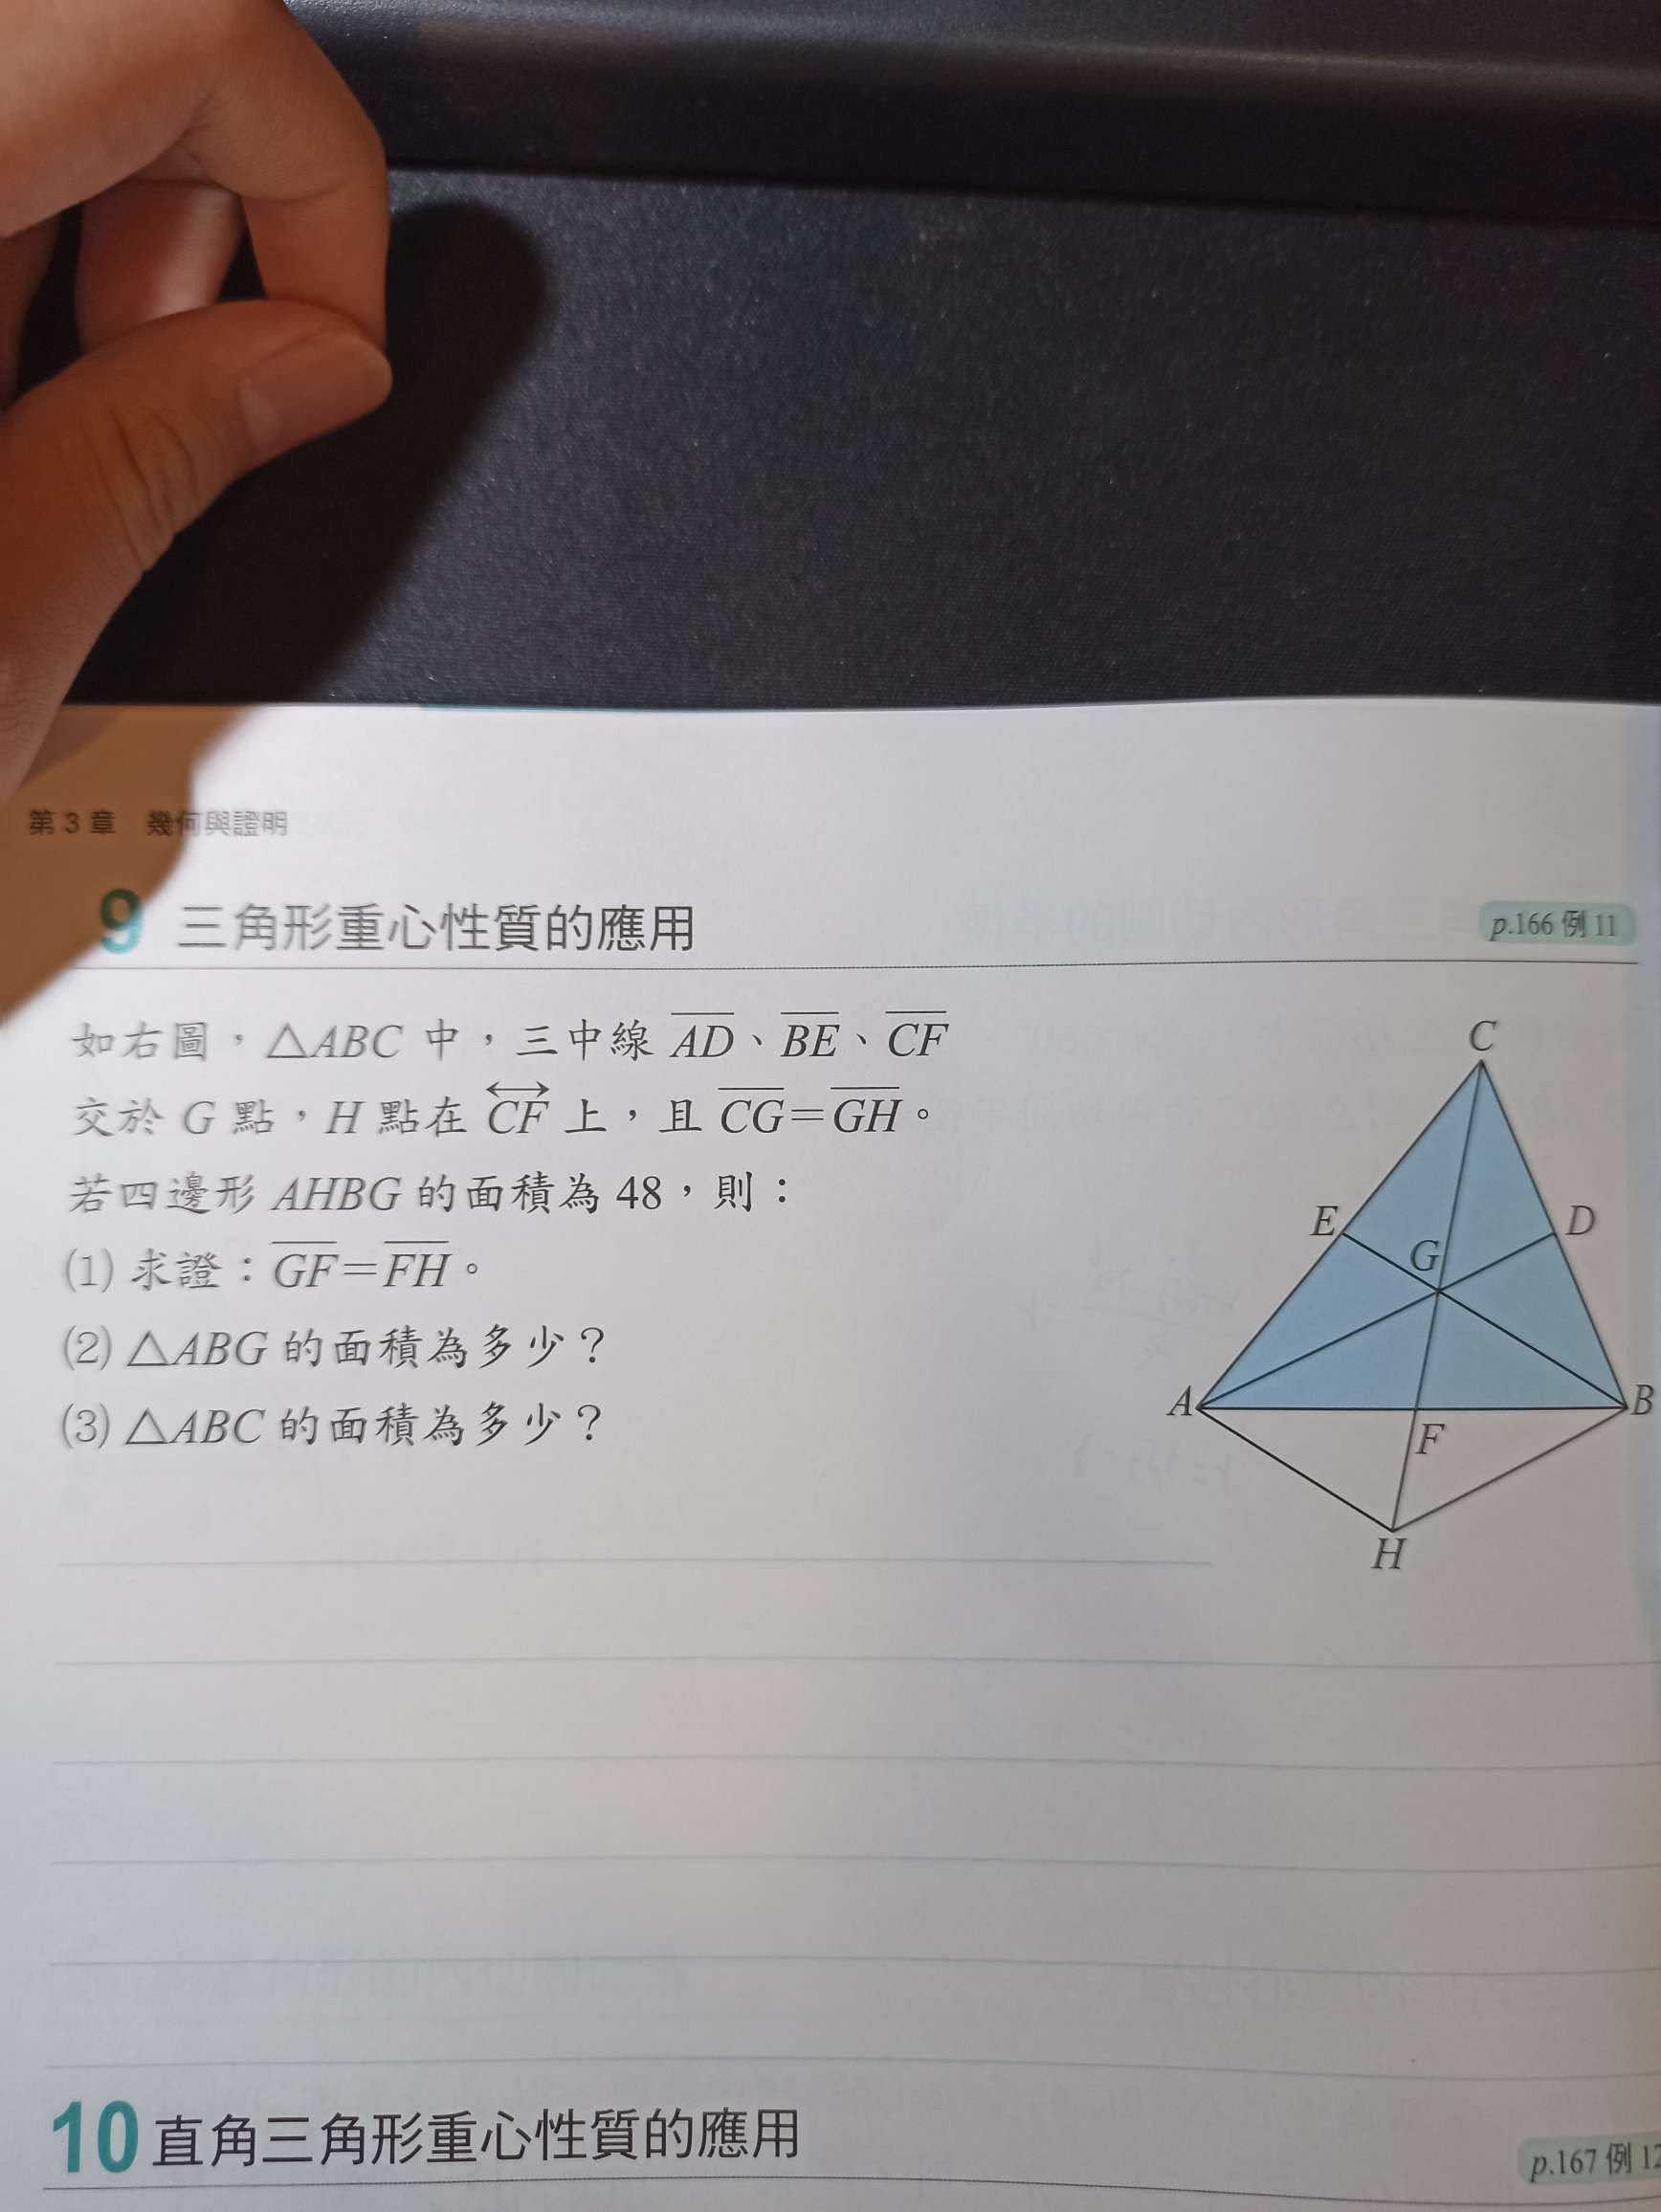 第 3 章 幾何與證明
9 三角形重心性質的應用
p.166 例 11
如右圖，△ABC 中，三中線 AD、BE、CF
交於 G 點，H 點在 CF 上，且 CG=GH。
若四邊形 AHBG 的面積為 48，則：
(1) 求證：GF=FH。
(2) △ABG 的面積為多少？
(3) △ABC 的面積為多少？
C
E
D
G
A
B
F
H
10 直角三角形重心性質的應用
p.167 例 12